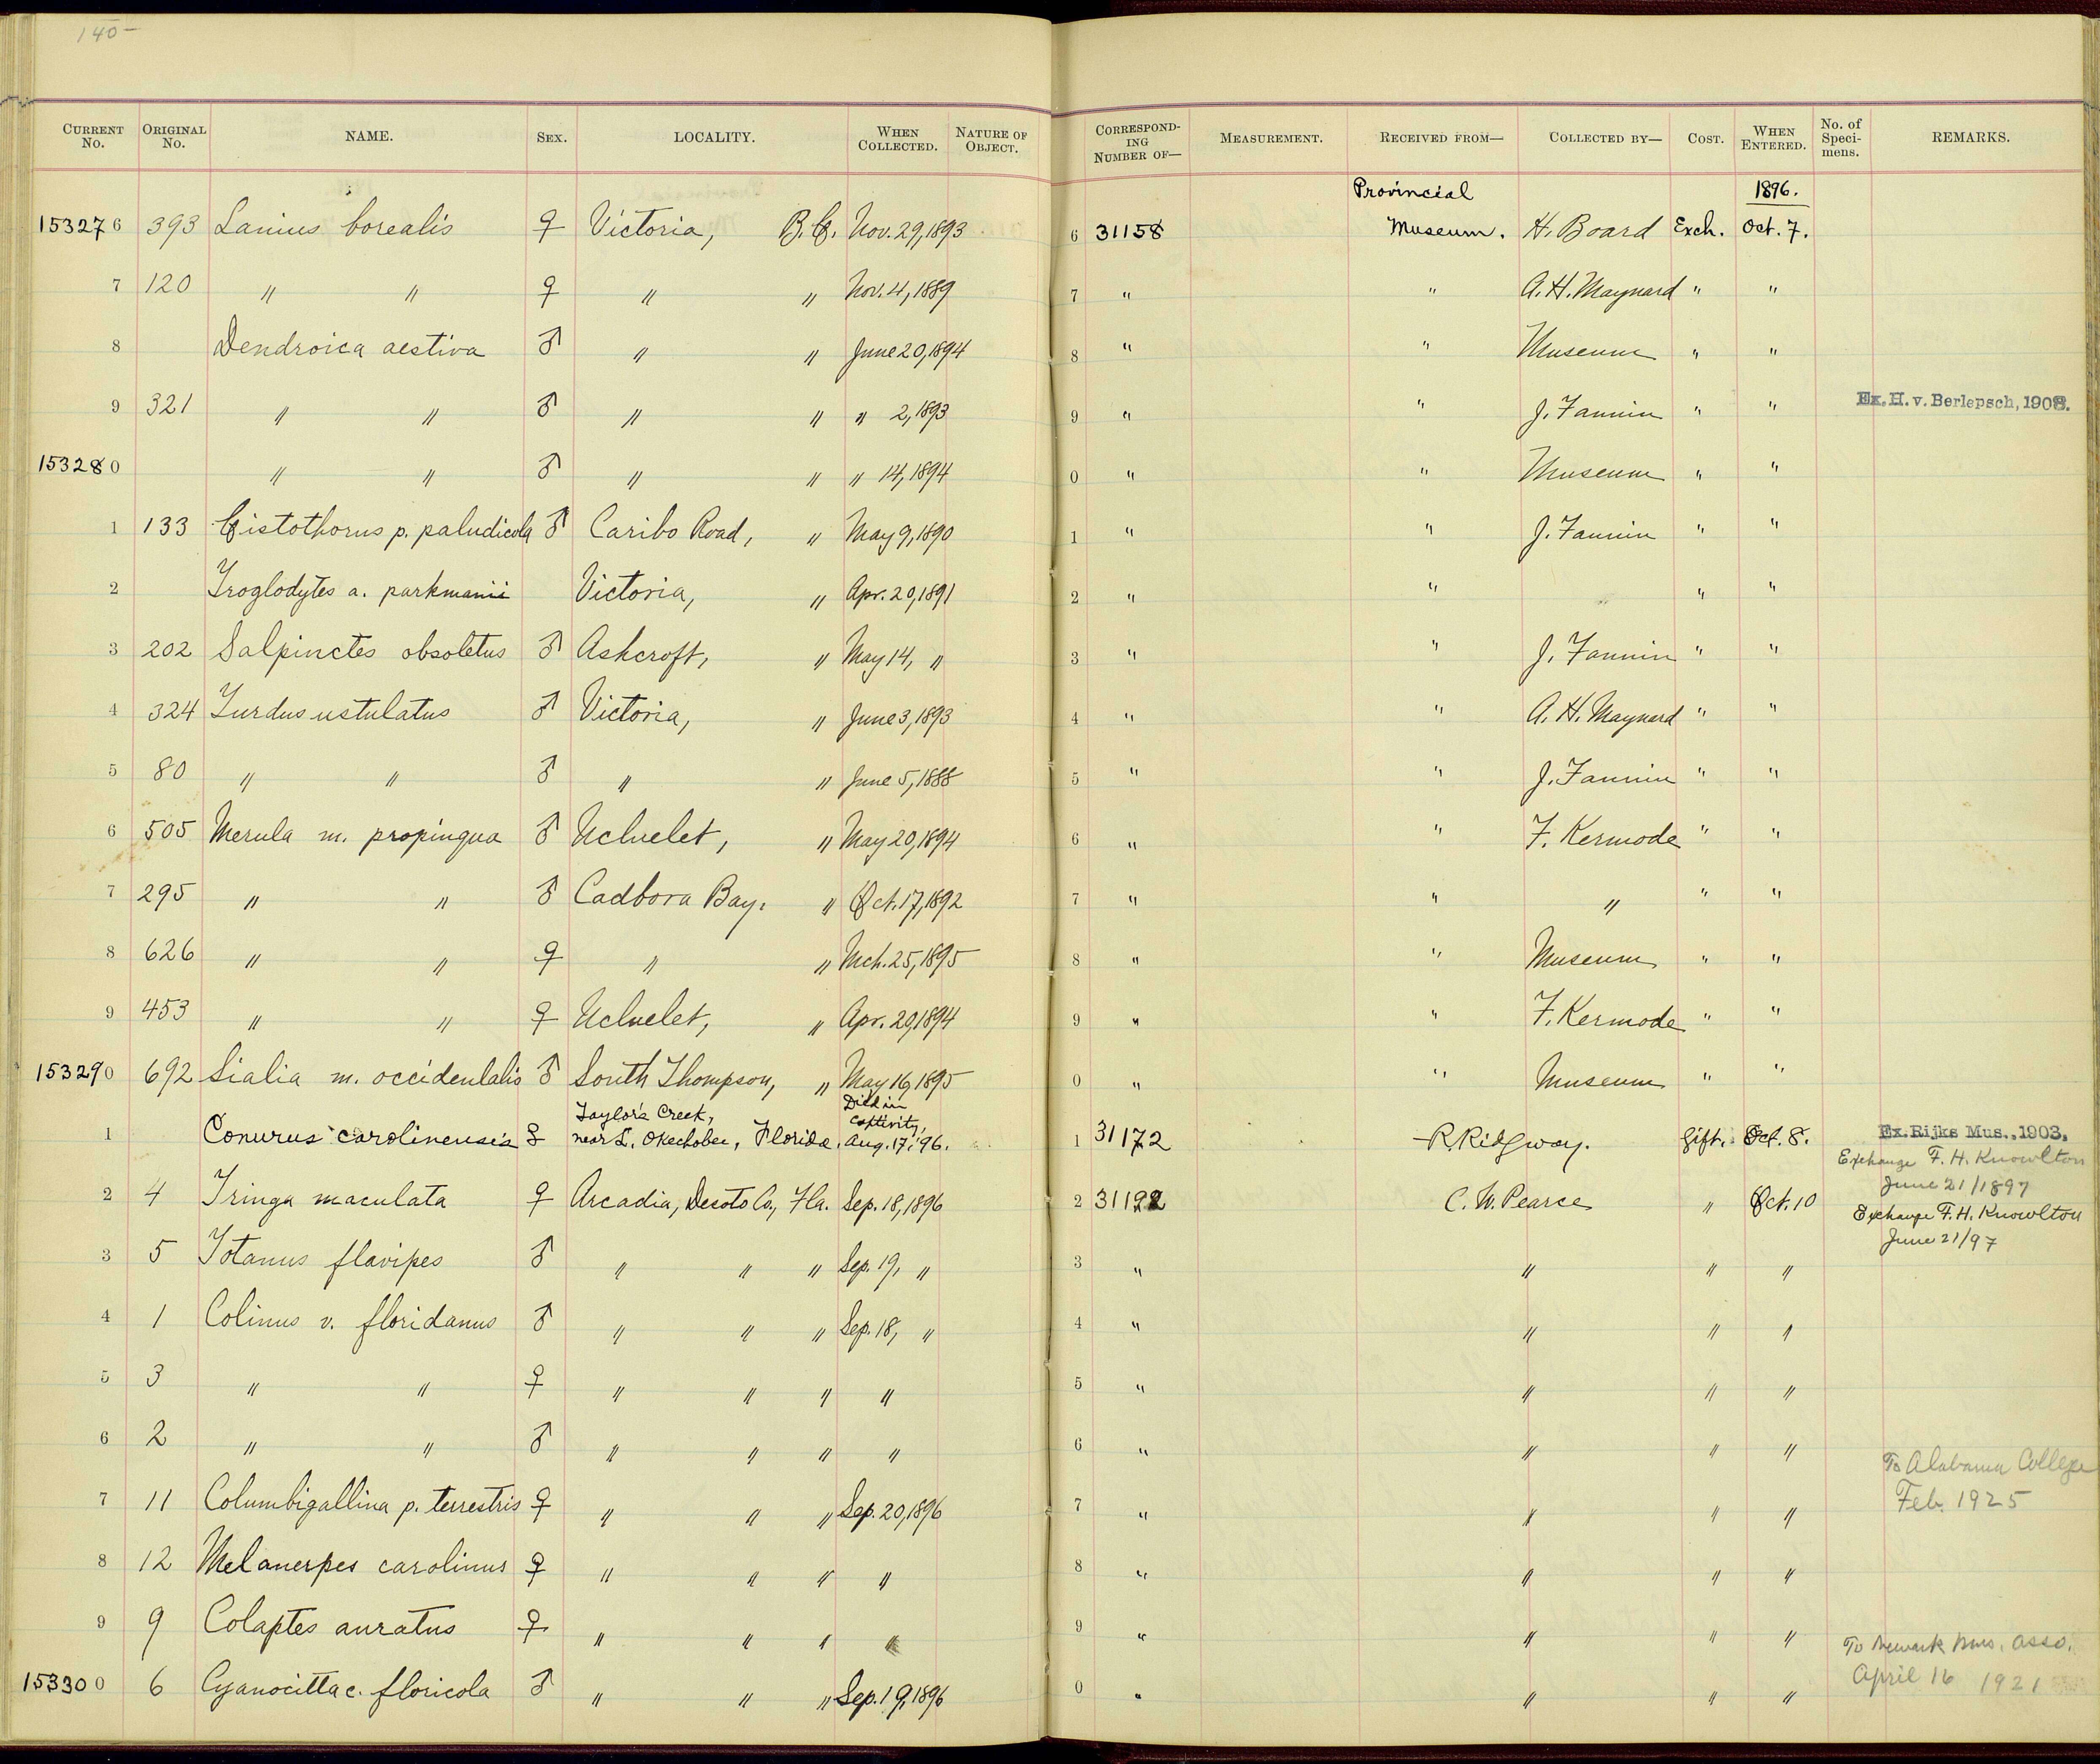 140-
CURRENT No. ORIGINAL No. NAME. SEX. LOCALITY. WHEN COLLECTED. NATURE OF OBJECT. CORRESPONDING NUMBER OF— MEASUREMENT. RECEIVED FROM— COLLECTED BY— COST. WHEN ENTERED. No. of Specimens. REMARKS.
Provincial 1896.
153276 393 Lanius borealis ♀ Victoria, B.C. Nov. 29, 1893 6 31158 Museum. H. Board Exch. Oct. 7.
7 120 " " ♀ " " Nov. 4, 1889 7 " " A. H. Maynard " "
8 Dendroica aestiva ♂ " " June 20, 1894 8 " " Museum " "
9 321 " " ♂ " " " 2, 1893 9 " " J. Fannin " " Ex. H. v. Berlepsch, 1908.
153280 " " ♂ " " " 14, 1894 0 " " Museum " "
1 133 Cistothorus p. paludicola ♂ Caribo Road, " May 9, 1890 1 " " J. Fannin " "
2 Troglodytes a. parkmanii Victoria, " Apr. 20, 1891 2 " " " "
3 202 Salpinctes obsoletus ♂ Ashcroft, " May 14, " 3 " " J. Fannin " "
4 324 Turdus ustulatus ♂ Victoria, " June 3, 1893 4 " " A. H. Maynard " "
5 80 " " ♂ " " June 5, 1888 5 " " J. Fannin " "
6 505 Merula m. propinqua ♂ Ucluelet, " May 20, 1894 6 " " F. Kermode " "
7 295 " " ♂ Cadbora Bay, " Oct. 17, 1892 7 " " " " "
8 626 " " ♀ " " Mch. 25, 1895 8 " " Museum " "
9 453 " " ♀ Ucluelet, " Apr. 20, 1894 9 " " F. Kermode " "
153290 692 Sialia m. occidentalis ♂ South Thompson, " May 16, 1895 0 " " Museum " "
Taylor's Creek, Died in captivity,
1 Conurus carolinensis near L. Okechobee, Florida. Aug. 17, '96. 1 31172 R. Ridgway. Gift. Oct. 8. Ex. Rijks Mus., 1903.
Exchange F. H. Knowlton
June 21/1897
2 4 Tringa maculata ♀ Arcadia, Desoto Co., Fla. Sep. 18, 1896 2 31192 C. W. Pearce " Oct. 10 Exchange F. H. Knowlton
June 21/97
3 5 Totanus flavipes ♂ " " " Sep. 19, " 3 " " " "
4 1 Colinus v. floridanus ♂ " " " Sep. 18, " 4 " " " "
5 3 " " ♀ " " " " 5 " " " "
6 2 " " ♂ " " " " 6 " " " "
To Alabama College
7 11 Columbigallina p. terrestris ♀ " " " Sep. 20, 1896 7 " " " " Feb. 1925
8 12 Melanerpes carolinus ♀ " " " " 8 " " " "
9 9 Colaptes auratus ♀ " " " " 9 " " " " To Newark Mus. Asso.
153300 6 Cyanocitta c. floricola ♂ " " " Sep. 19, 1896 0 " " " " April 16 1921